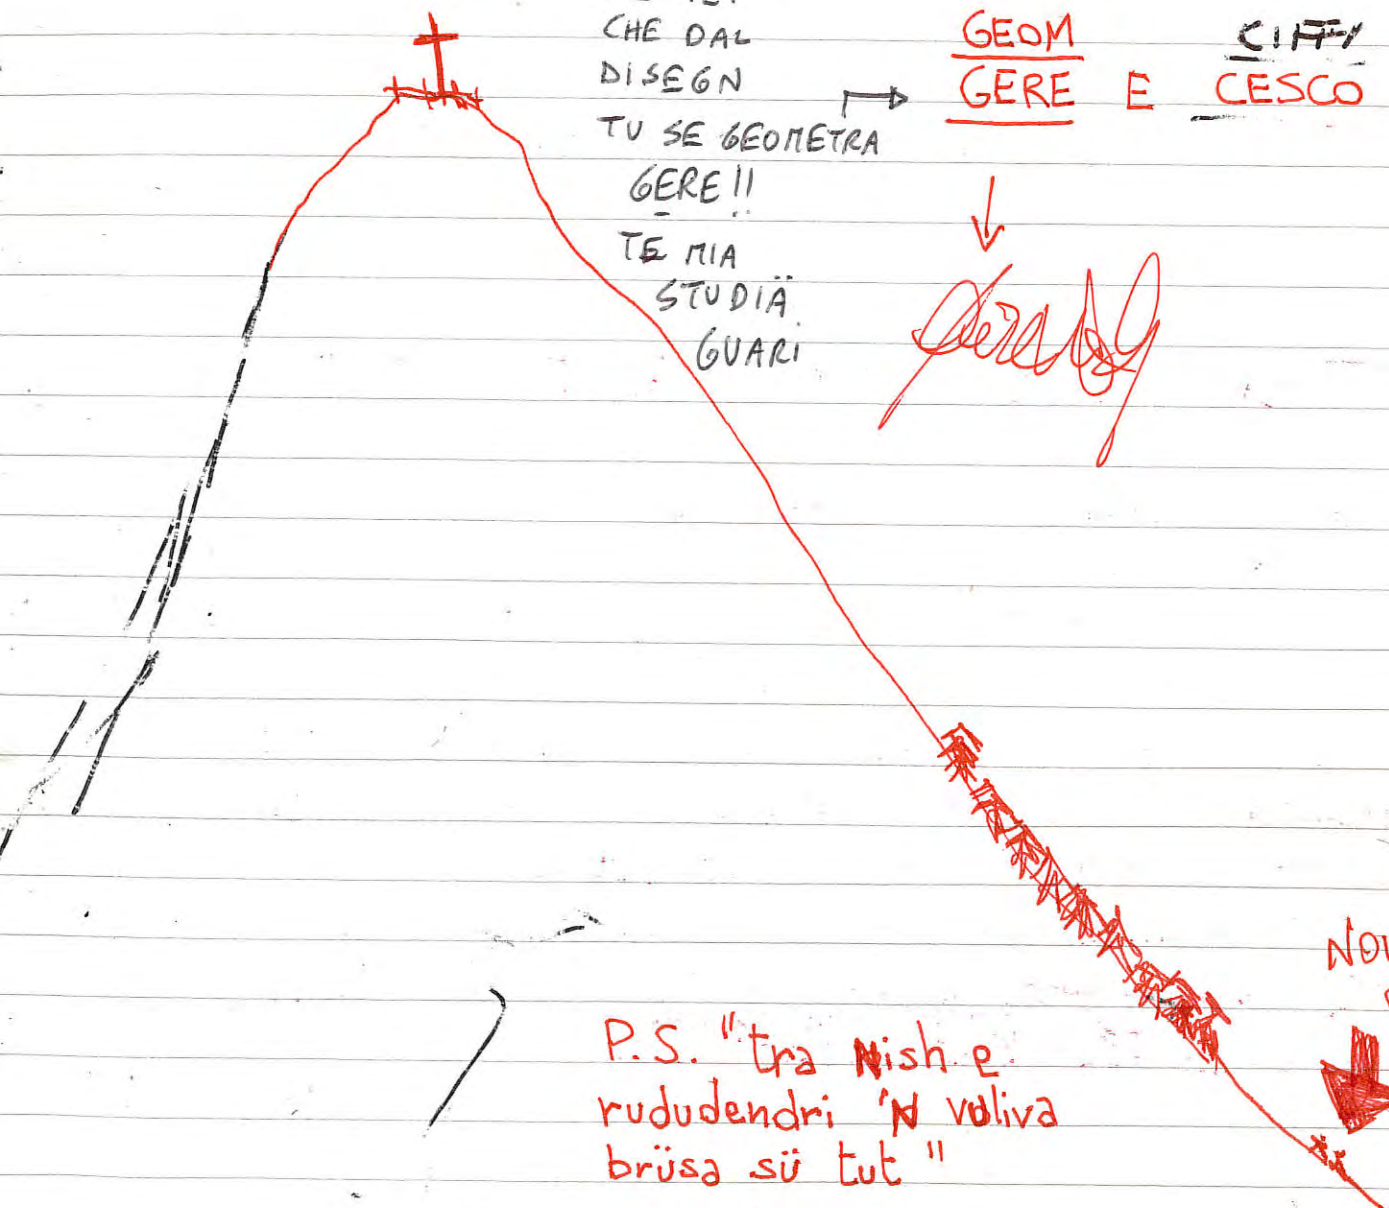 CHE DAL
DISEGN
TU SE GEOMETRA
GERE!!
TE MIA
STUDIÄ
GUARI
GEOM
GERE E CESCO
NOI
P.S. "tra Nish e
rududendri 'N vuliva
brüsa sü tut"